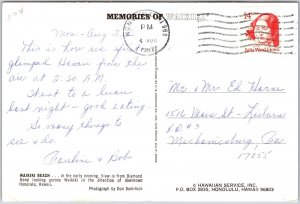 MEMORIES OF WAIKIKI
Mon - Aug 2
This is how we first
glimpsed Hawaii from the
air at 2:30 A.M.
Went to a luau
last night - good eating.
So many things to
see & do.
Pauline & Bob
WAIKIKI BEACH . . . in the early evening. View is from Diamond
Head looking across Waikiki in the direction of downtown
Honolulu, Hawaii.
Photograph by Don Dominick
PM
4 AUG
14
Julia Ward Howe
Mr & Mrs Ed Horne
Mechanicsburg, Pa
17055
© HAWAIIAN SERVICE, INC.
P.O. BOX 2835, HONOLULU, HAWAII 96803